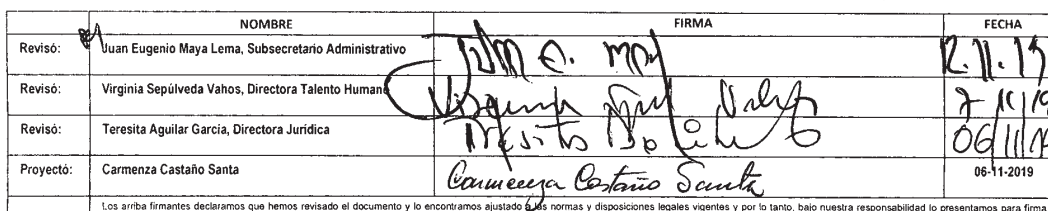 NOMBRE FIRMA FECHA
Revisó: Juan Eugenio Maya Lema, Subsecretario Administrativo Juan E. May 12.11.19
Revisó: Virginia Sepúlveda Vahos, Directora Talento Humano Virginia 7 11/19
Revisó: Teresita Aguilar García, Directora Jurídica Teresita 06/11/19
Proyectó: Carmenza Castaño Santa Carmenza Castaño Santa 06-11-2019
Los arriba firmantes declaramos que hemos revisado el documento y lo encontramos ajustado a las normas y disposiciones legales vigentes y por lo tanto, bajo nuestra responsabilidad lo presentamos para firma